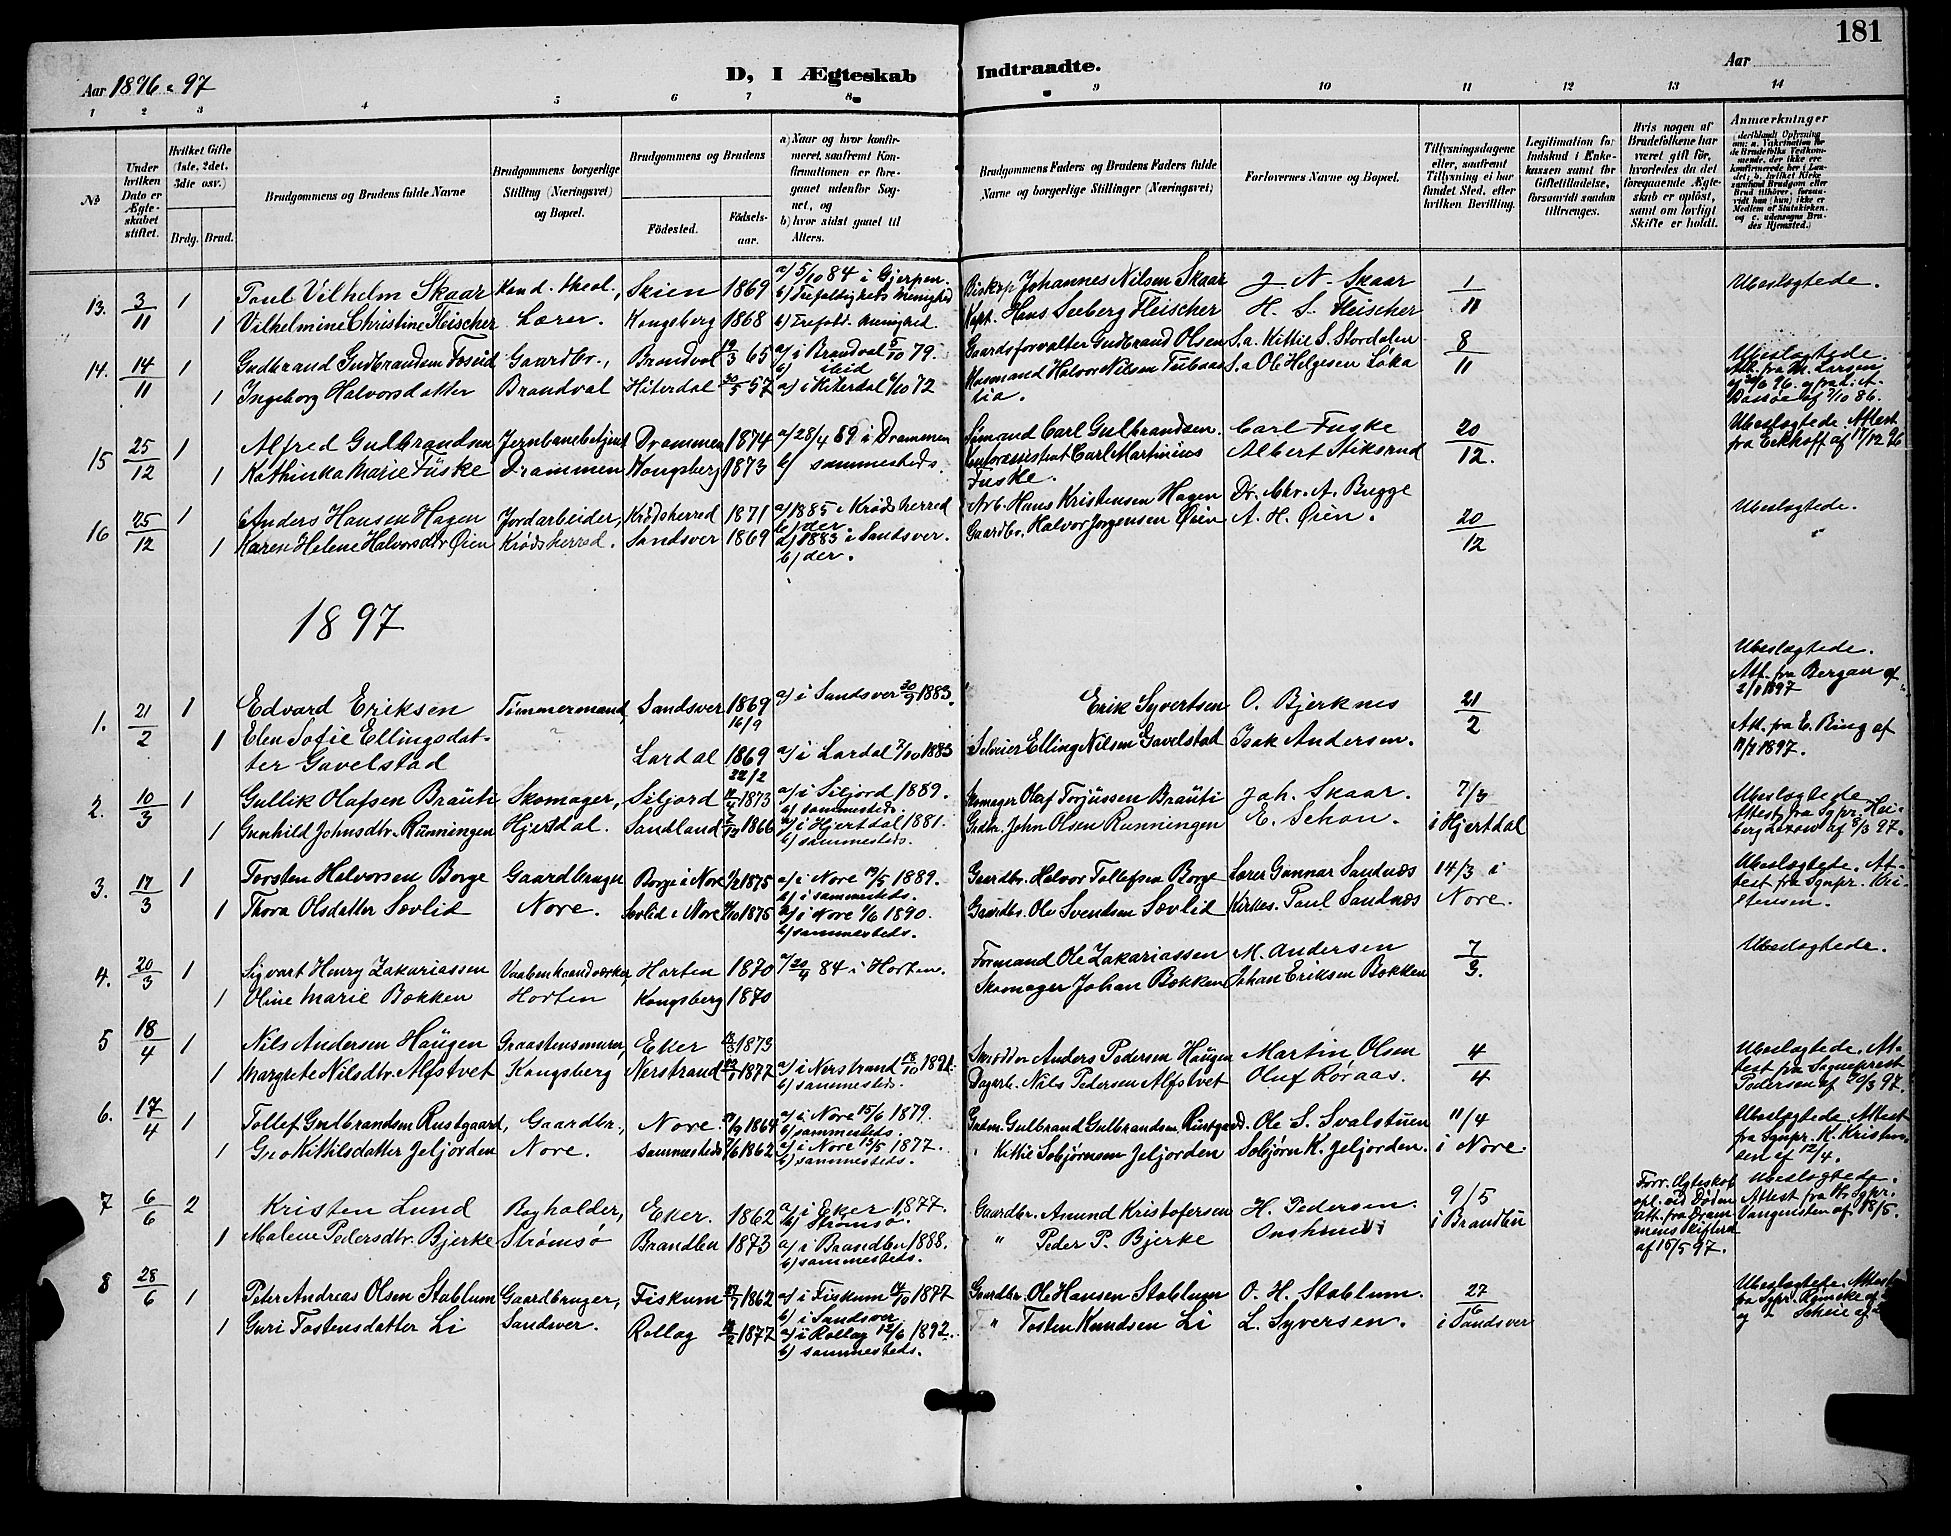 181
D, I Ægteskab Indtraadte.
Aar 1896 & 97
Aar
1 2 3 4 5 6 7 8 9 10 11 12 13 14
No
Under hvilken Dato er Ægteskabet stiftet.
Hvilket Gifte (1ste, 2det, 3die osv.)
Brdg. Brud.
Brudgommens og Brudens fulde Navne
Brudgommens borgerlige Stilling (Næringsvei) og Bopæl.
Brudgommens og Brudens
Fødested. Fødselsaar.
a) Naar og hvor konfirmeret, saafremt Konfirmationen er foregaaet udenfor Sognet, og
b) hvor sidst gaaet til Alters.
Brudgommens Faders og Brudens Faders fulde Navne og borgerlige Stillinger (Næringsvei)
Forlovernes Navne og Bopæl.
Tillysningsdagene eller, saafremt Tillysning ei har fundet Sted, efter hvilken Bevilling.
Legitimation for Indskud i Enkekassen samt for Giftetilladelse, forsaavidt saadan tiltrænges.
Hvis nogen af Brudefolkene har været gift før, hvorledes da det foregaaende Ægteskab er opløst, samt om lovligt Skifte er holdt.
Anmærkninger
13. 3/11 1 Paul Vilhelm Skaar Kand. theol., Skien 1869 a) 5/10 84 i Gjerpen. b) Trefoldigheds Menighed Biskop Johannes Nilsen Skaar J. N. Skaar 1/11 Ubeslægtede.
1 Vilhelmine Christine Fleischer Lærer. Kongsberg 1868 b) Trefold. menighed. Kapt. Hans Seeberg Fleischer H. S. Fleischer
14. 14/11 1 Gudbrand Gudbrandsen Foseid Gaardbr., Brandval 19/3 65 a) i Brandval 5/10 79. b) ibid Gaardsforvalter Gudbrand Olsen S.a. Kittil S. Stordalen 8/11 Ubeslægtede.
1 Ingeborg Halvorsdatter Brandval Hiterdal 30/5 57 a) i Hiterdal 6/10 72 Husmand Halvor Nilsen S.a Ole Helgesen Løka
lia.
15 25/12 1 Alfred Gulbrandsen Jernbanebetjent Drammen 1874 a) 28/4 89 i Drammen Sømand Carl Gulbrandsen. Carl Fuske 20/12. Ubeslægtede. Attest fra Eckhoff af 17/12 96
1 Kathinka Marie Füske Drammen Kongsberg 1873 b) sammesteds. Carl Martinius Albert Stiksrud
Fuske.
16 25/12 1 Anders Hansen Hagen Jordarbeider, Krødsherred 1871 a) 1885 i Krødsherred b) der. Arb. Hans Kristensen Hagen Dr. Chr. A. Bugge 20/12 Ubeslægtede.
1 Karen Helene Halvorsdtr Øien Krødsherred. Sandsver 1869 a) 1883 i Sandsver. b) der. Gaardbr. Halvor Jørgensen Øien A. H. Øien.
1897
1. 21/2 1 Edvard Eriksen Tømmermand, Sandsver 1869 16/9 a) i Sandsver 30/9 1883. Erik Syvertsen O. Bjerknes 21/2 Ubeslægtede. Att. fra Bergan af 2/1 1897
1 Elen Sofie Ellingsdatter Gavelstad Lardal 1869 22/2 a) i Lardal 7/10 1883 Selveier Elling Nilsen Gavelstad Isak Andersen. Att. fra E. Bing af 1897.
2. 10/3 1 Gullik Olafsen Bräuti Skomager, Siljord 1873 a) i Siljord 1889. b) sammesteds. Skomager Olaf Torjüssen Bräuti Joh. Skaar. 7/3 Ubeslægtede. Attest fra Sgpr. Heiberg Lexow af 8/3 97.
1 Gunhild Johnsdtr. Rünningen Hjertdal. Sandland 1866 a) i Hjertdal 1881. b) sammesteds. Grdbr. John Olsen Runningen E. Schøn. i Hjertdal
3. 17/3 1 Torsten Halvorsen Borge Gaardbruger Borge i Nore 1/2 1875 a) i Nore 19/5 1889. b) i sammesteds. Gaardbr. Halvor Tollefsen Borge Lærer Gunnar Sandnæs 14/3 i Ubeslægtede. Attest fra Sgnpr. Kristensen.
1 Thora Olsdatter Sævlid Nore. Sævlid i Nore 1875 a) i Nore 1/6 1890. b) sammesteds. Gaardbr. Ole Svendsen Sævlid Kirkes. Paul Sandnæs Nore.
4. 20/3 1 Sigvart Henry Zakariassen Vaabenhaandværker, Horten 1870 a) 20/4 84 i Horten. Formand Ole Zakariassen M. Andersen 7/3. Ubeslægtede.
1 Oline Marie Bækken Horten Kongsberg 1870 Skomager Johan Bækken Johan Eriksen Bækken
5 18/4 1 Nils Andersen Haügen Graastensmurer, Eker 1873 Skrædder Anders Pedersen Haügen Martin Olsen 4/4 Ubeslægtede. Attest fra Sogneprest Pedersen af 20/3 97.
1 Margrete Nilsdtr. Alfstvet Kongsberg Nerstrand 1877 a) i Nerstrand 18/10 1891. b) sammesteds. Dagarb. Nils Pedersen Alfstvet Oluf Røraas.
6. 17/4 1 Tollef Gulbrandsen Rustgaard, Gaardbr., Nore 1864 a) i Nore 15/6 1879. b) sammesteds. Gulbrand Gulbrandsen Rustgard. Ole S. Svalstuen 11/4 Ubeslægtede. Attest fra Sgnpr. K. Kristensen af 12/4.
1 Gro Kittilsdatter Jeljorden Nore. sammesteds 1/6 1862 a) i Nore 13/5 1877. b) sammesteds. " Kittil Sebjørnsen Jeljorden Sebjørn K. Jeljorden. i Nore
7 6/6 2 Kristen Lund Bogholder, Eker. 1862 a) i Eker 1877. b) Strømsø. Gaardbr. Amund Kristofersen H. Pedersen 9/5 Forr. Ægteskab opl. ved Døden att. fra Drammens Skifteret af 15/5 97. Ubeslægtede. Attest fra Sgpr. Vangensten af 18/5.
1 Malene Pedersdtr. Bjerke Strømsø Brandbu 1873 a) i Brandbu 1888. b) sammesteds. " Peder P. Bjerke i Brandbu
8 28/6 1 Peter Andreas Olsen Stablum Gaardbruger, Fiskum 1862 a) i Fiskum 14/10 1877 b) i Sandsver. Gaardbr. Ole Hansen Stablum O. H. Stablum. 27/6 Ubeslægtede. Attest fra Sgpr.
1 Guri Tostensdatter Li Sandsver. Rollag 1877 a) i Rollag 12/6 1892. b) sammesteds. " Tosten Knudsen Li L. Syversen. i Sandsver